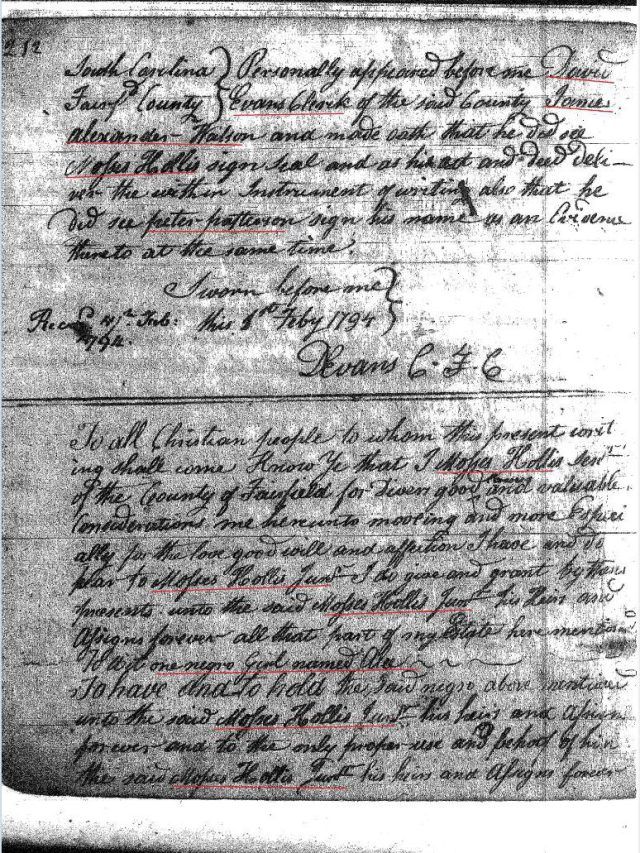 212
South Carolina } Personally appeared before me David
Fairfd County } Evans Clerk of the said County James
Alexander Watson and made oath that he did see
Moses Hollis sign seal and as his act and deed deli-
ver the within Instrument of writing also that he
did see peter patterson sign his name as an Evidence
thereto at the same time.
Sworn before me
this 1st Feby 1794 }
Feb:
1794.
DEvans C. F. C
To all Christian people to whom this present writ
ing shall come Know Ye that I Moses Hollis Senr
of the County of Fairfield for Divers good and valuable
Considerations me hereunto mooving and more Especi
ally for the love good will and affection I have and do
bear to Moses Hollis Junr I do give and grant by these
presents unto the said Moses Hollis Junr his Heirs and
Assigns forever all that part of my Estate here mentioned
To wit one negro Girl named
To have and to hold the said negro above mentioned
unto the said Moses Hollis Junr his heirs and Assigns
forever and to the only proper use and behoof of him
the said Moses Hollis Junr his heirs and Assigns forever